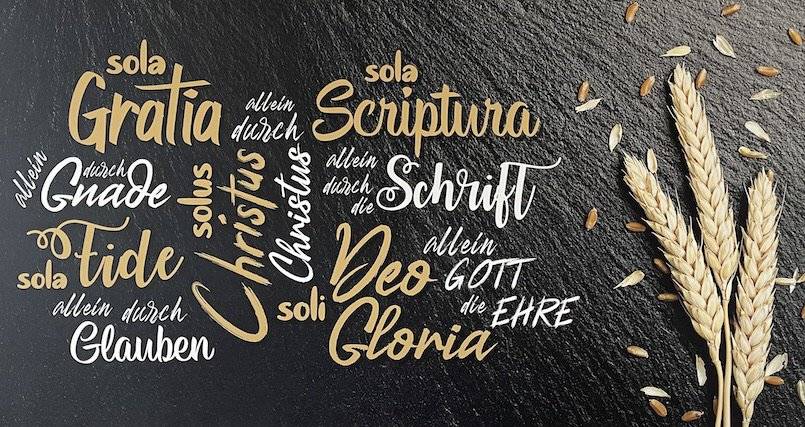 sola
Gratia
allein
durch
Gnade
sola
Fide
allein durch
Glauben
solus
Christus
allein
durch
Christus
sola
Scriptura
allein
durch
die
Schrift
soli
Deo
Gloria
allein
GOTT
die EHRE